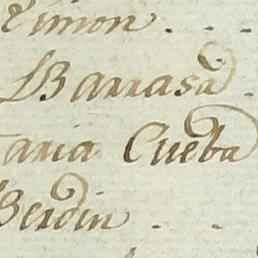 Simon . . .
Barrasa .
aria Cueba
Berdin . .